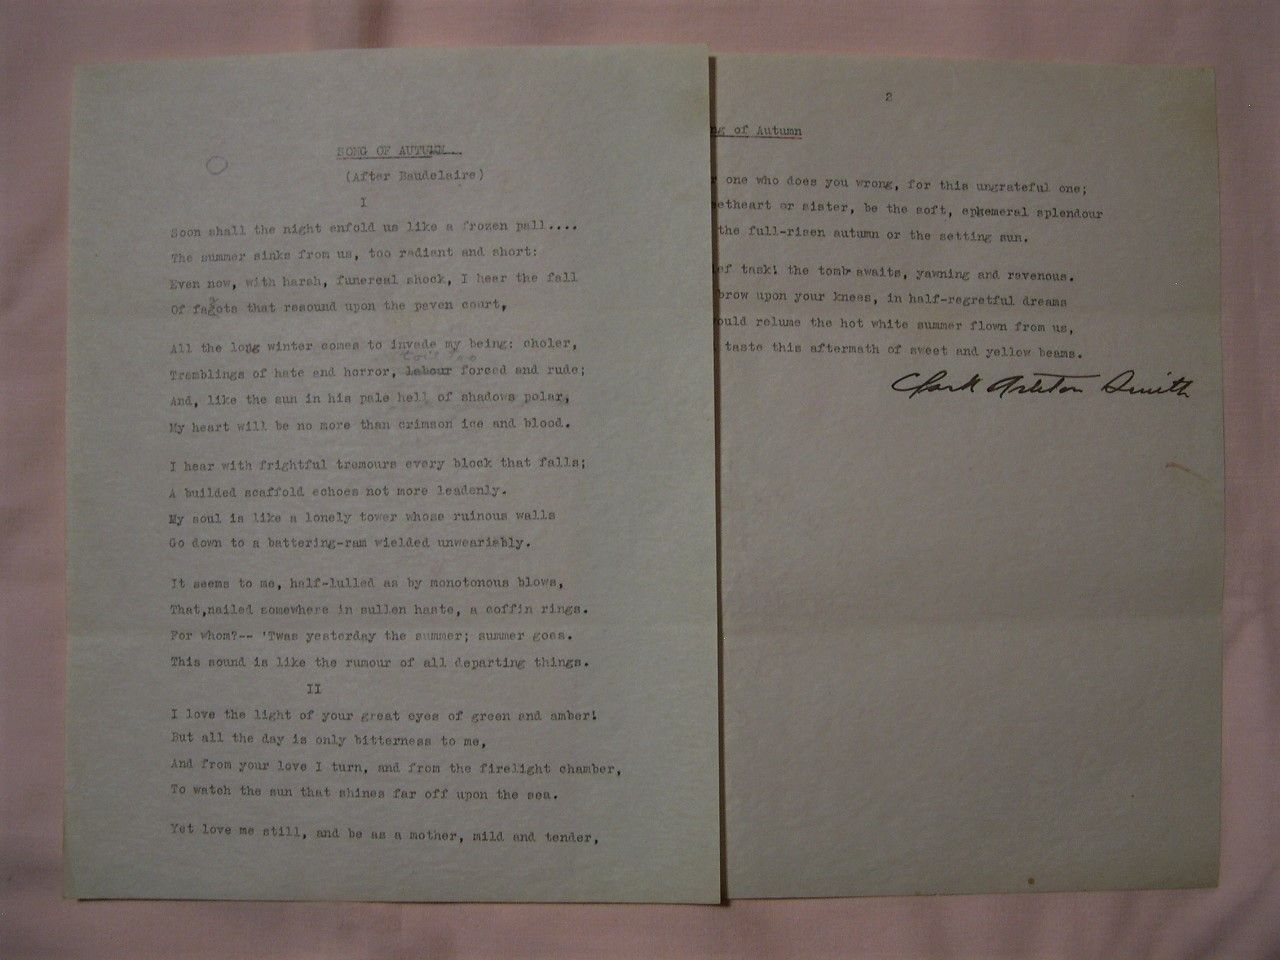 SONG OF AUTUMN
(After Baudelaire)
I
Soon shall the night enfold us like a frozen pall....
The summer sinks from us, too radiant and short:
Even now, with harsh, funereal shock, I hear the fall
Of fagots that resound upon the paven court,
All the long winter comes to invade my being: choler,
toil too
Tremblings of hate and horror, labour forced and rude;
And, like the sun in his pale hell of shadows polar,
My heart will be no more than crimson ice and blood.
I hear with frightful tremours every block that falls;
A builded scaffold echoes not more leadenly.
My soul is like a lonely tower whose ruinous walls
Go down to a battering-ram wielded unweariably.
It seems to me, half-lulled as by monotonous blows,
That,nailed somewhere in sullen haste, a coffin rings.
For whom?-- 'Twas yesterday the summer; summer goes.
This sound is like the rumour of all departing things.
II
I love the light of your great eyes of green and amber!
But all the day is only bitterness to me,
And from your love I turn, and from the firelight chamber,
To watch the sun that shines far off upon the sea.
Yet love me still, and be as a mother, mild and tender,
2
of Autumn
one who does you wrong, for this ungrateful one;
or sister, be the soft, ephemeral splendour
the full-risen autumn or the setting sun.
task! the tomb awaits, yawning and ravenous.
brow upon your knees, in half-regretful dreams
relume the hot white summer flown from us,
taste this aftermath of sweet and yellow beams.
Clark Ashton Smith